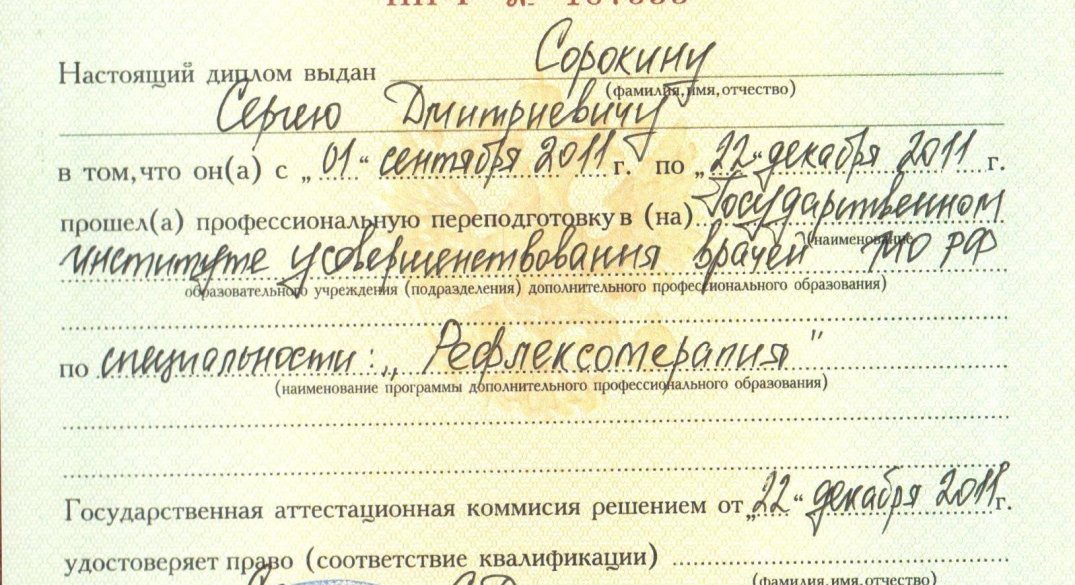 Настоящий диплом выдан Сорокину
(фамилия, имя, отчество)
Сергею Дмитриевичу
в том, что он(а) с „01“ сентября 2011 г. по „22“ декабря 2011 г.
прошел(а) профессиональную переподготовку в (на) Государственном
(наименование
институте усовершенствования врачей МО РФ
образовательного учреждения (подразделения) дополнительного профессионального образования)
по специальности: „Рефлексотерапия"
(наименование программы дополнительного профессионального образования)
Государственная аттестационная комиссия решением от „22“ декабря 2011 г.
удостоверяет право (соответствие квалификации)
(фамилия, имя, отчество)